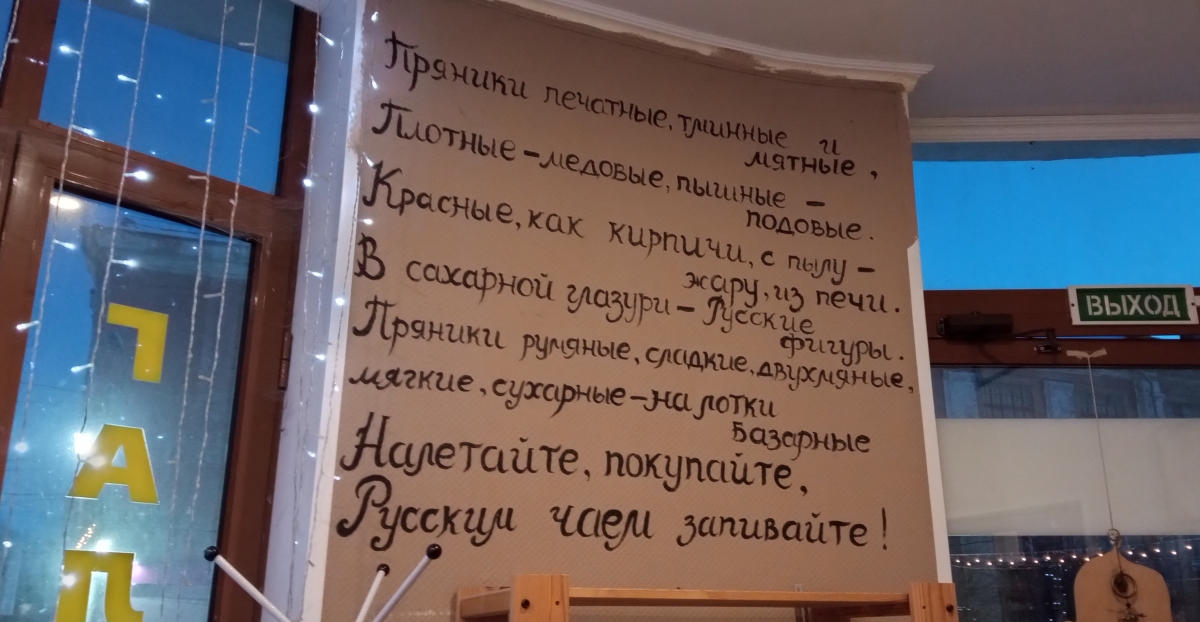 Пряники печатные, тминные и
мятные,
Плотные – медовые, пышные –
подовые.
Красные, как кирпичи, с пылу –
жару, из печи.
В сахарной глазури – Русские
фигуры.
Пряники румяные, сладкие, двухмяные,
мягкие, сухарные – на лотки
Базарные
Налетайте, покупайте,
Русским чаем запивайте!
ВЫХОД
Г
А
Л